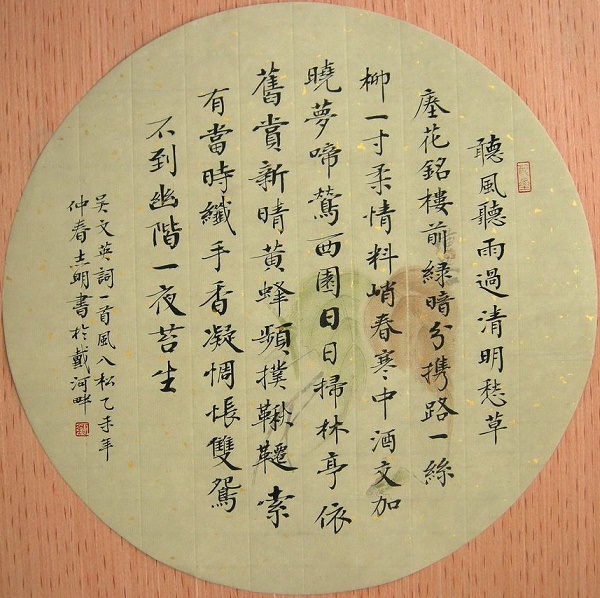 聽風聽雨過清明愁草
瘞花銘樓前緑暗分携路一絲
柳一寸柔情料峭春寒中酒交加
曉夢啼鶯西園日日掃林亭依
舊賞新晴黄蜂頻撲鞦韆索
有當時纖手香凝惆悵雙鴛
不到幽階一夜苔生
吴文英詞一首風入松乙未年
仲春志明書於戴河畔